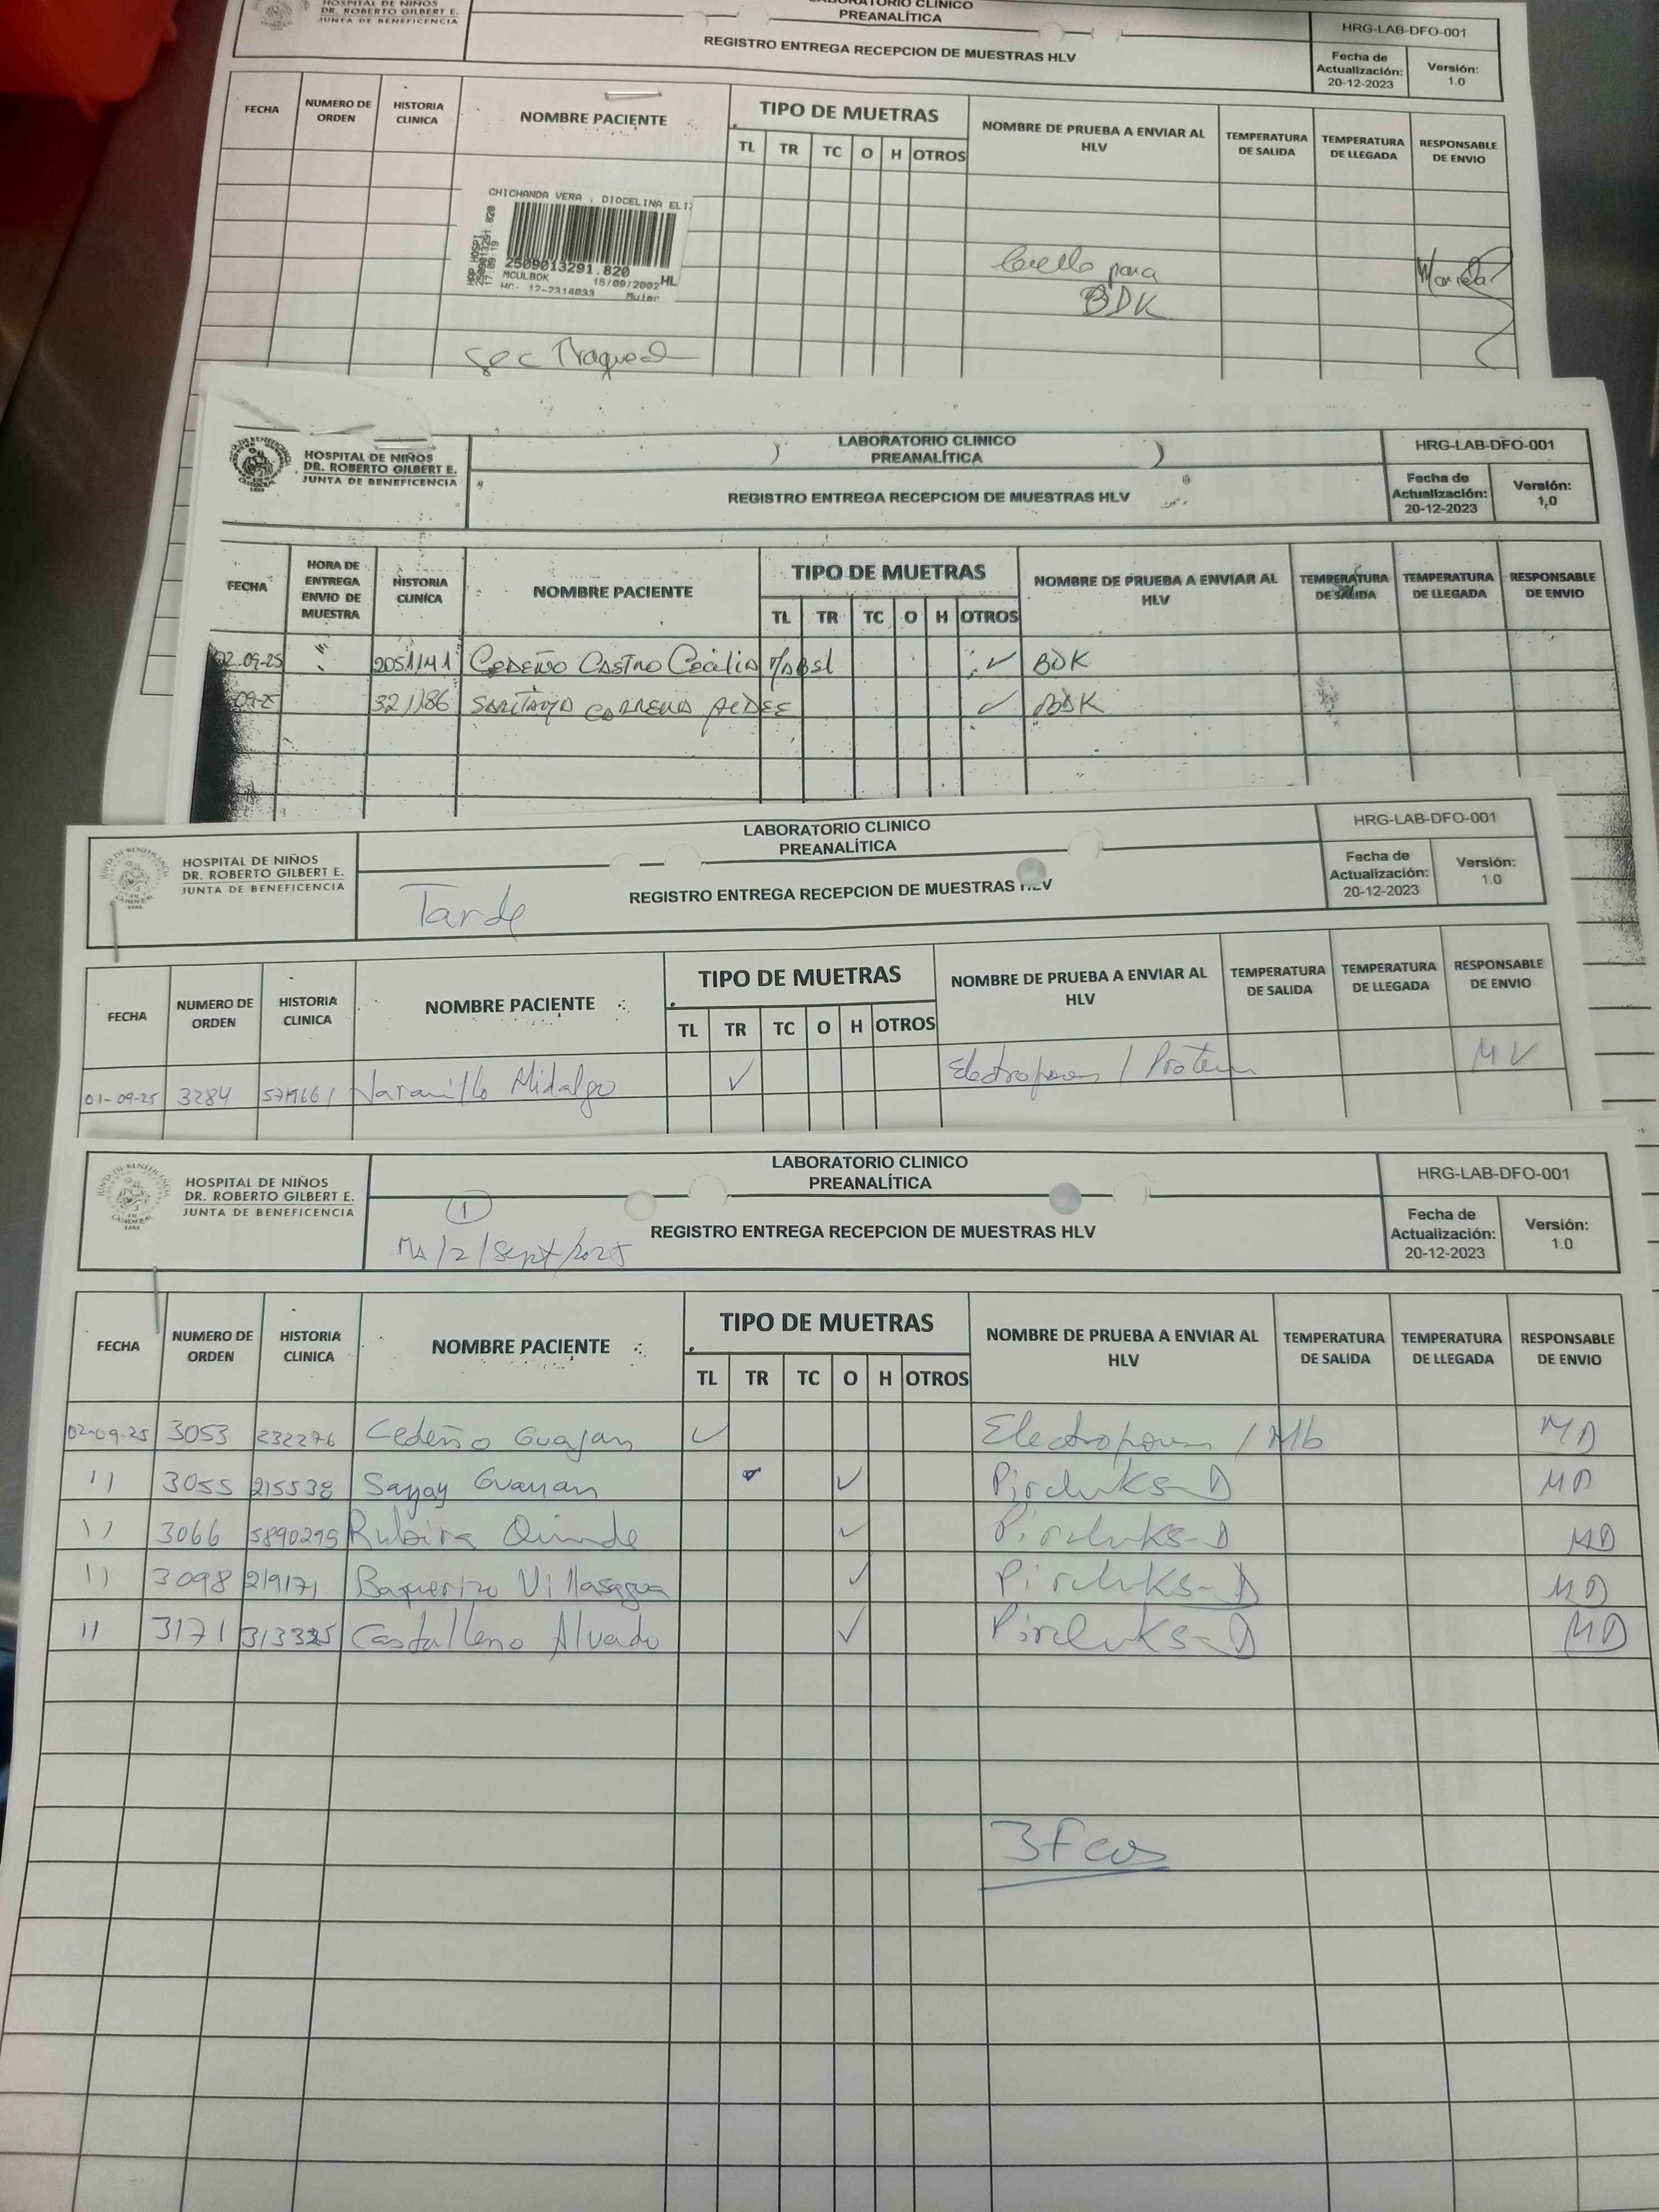 HOSPITAL DE NIÑOS
DR. ROBERTO GILBERT E.
JUNTA DE BENEFICENCIA
LABORATORIO CLINICO
PREANALÍTICA
REGISTRO ENTREGA RECEPCION DE MUESTRAS HLV
HRG-LAB-DFO-001
Fecha de Actualización: 20-12-2023
Versión: 1.0
FECHA NUMERO DE ORDEN HISTORIA CLINICA NOMBRE PACIENTE TIPO DE MUETRAS NOMBRE DE PRUEBA A ENVIAR AL HLV TEMPERATURA DE SALIDA TEMPERATURA DE LLEGADA RESPONSABLE DE ENVIO
TL TR TC O H OTROS
CHICHANDA VERA , DIOCELINA ELI
2509013291.820
17:09:19
2509013291.820 HL
MCULBDK 15/09/2002
HC: 12-2314033 Mujer
para
BDK
Sec Traqueal
HOSPITAL DE NIÑOS
DR. ROBERTO GILBERT E.
JUNTA DE BENEFICENCIA
LABORATORIO CLINICO
PREANALÍTICA
REGISTRO ENTREGA RECEPCION DE MUESTRAS HLV
HRG-LAB-DFO-001
Fecha de Actualización: 20-12-2023
Versión: 1,0
FECHA HORA DE ENTREGA ENVIO DE MUESTRA HISTORIA CLINICA NOMBRE PACIENTE TIPO DE MUETRAS NOMBRE DE PRUEBA A ENVIAR AL HLV TEMPERATURA DE SALIDA TEMPERATURA DE LLEGADA RESPONSABLE DE ENVIO
TL TR TC O H OTROS
02-09-25 2051141 CEDEÑO CASTRO Cecilia ✓ BDK
09-25 321186 ✓ BDK
HOSPITAL DE NIÑOS
DR. ROBERTO GILBERT E.
JUNTA DE BENEFICENCIA
LABORATORIO CLINICO
PREANALÍTICA
Tarde
REGISTRO ENTREGA RECEPCION DE MUESTRAS HLV
HRG-LAB-DFO-001
Fecha de Actualización: 20-12-2023
Versión: 1.0
FECHA NUMERO DE ORDEN HISTORIA CLINICA NOMBRE PACIENTE TIPO DE MUETRAS NOMBRE DE PRUEBA A ENVIAR AL HLV TEMPERATURA DE SALIDA TEMPERATURA DE LLEGADA RESPONSABLE DE ENVIO
TL TR TC O H OTROS
01-09-25 3284 Naranillo Hidalgo ✓ MV
HOSPITAL DE NIÑOS
DR. ROBERTO GILBERT E.
JUNTA DE BENEFICENCIA
LABORATORIO CLINICO
PREANALÍTICA
1
Ma/2/sept/2025
REGISTRO ENTREGA RECEPCION DE MUESTRAS HLV
HRG-LAB-DFO-001
Fecha de Actualización: 20-12-2023
Versión: 1.0
FECHA NUMERO DE ORDEN HISTORIA CLINICA NOMBRE PACIENTE TIPO DE MUETRAS NOMBRE DE PRUEBA A ENVIAR AL HLV TEMPERATURA DE SALIDA TEMPERATURA DE LLEGADA RESPONSABLE DE ENVIO
TL TR TC O H OTROS
02-09-25 3053 232276 Cedeño Guajan ✓ MD
11 3055 215538 ✓ MD
11 3066 5890295 Rubira Quinde ✓ MD
11 3098 219171 Baquerizo Villasagua ✓ MD
11 3171 313325 Castalleno Alvado ✓ MD